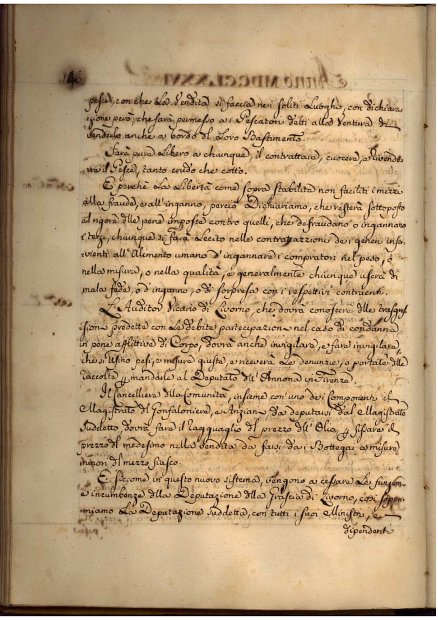 146 ANNO MDCCLXXVI
pesce, con che La Vendita si faccia nei soliti Luoghi, con dichiara-
zione però, che sarà permesso ai Pescatori detti alla Ventura di
Venderlo anche a bordo del Loro Bastimento.
Sarà pure Libero a chiunque, il contrattare, cuocere, e rivende-
re il Pesce, tanto crudo che cotto.
E perchè La Libertà come sopra stabilita non faciliti i mezzi
alla fraude, e all'inganno, perciò Dichiariamo, che resterà sottoposto
al rigore delle pene imposte contro quelli, che defraudano o ingannano
i terzi, chiunque si farà Lecito nelle contrattazioni dei generi inser-
vienti all'Alimento umano d'ingannare i compratori nel peso, o
nella misura, o nella qualità, e generalmente chiunque userà di
mala fede, o d'inganno, o di sorpresa con i respettivi contraenti.
L'Auditor Vicario di Livorno, che dovrà conoscere delle trasgres-
sioni predette con Le debite partecipazioni nel caso di condanna
in pene afflittive di Corpo dovrà anche invigilare, e fare invigilare,
che si usino pesi, e misure giuste, e riceverà Le denunzie, o portate delle
Raccolte per mandarle al Deputato dell'Annona in Firenze.
Il Cancelliere della Comunità, insieme con uno dei componenti il
Magistrato del Gonfaloniere, e Anziani da deputarsi dal Magistrato
suddetto dovrà fare il ragguaglio del prezzo dell'Olio, e fissare il
prezzo del medesimo nella Vendita da farsi dai Bottegai a misure
minori del mezzo fiasco.
E siccome in questo nuovo sistema, vengono a cessare Le funzioni
e incumbenze della Deputazione della Grascia di Livorno, così soppri-
miamo La Deputazione suddetta, con tutti i suoi Ministri, e
dipendenti